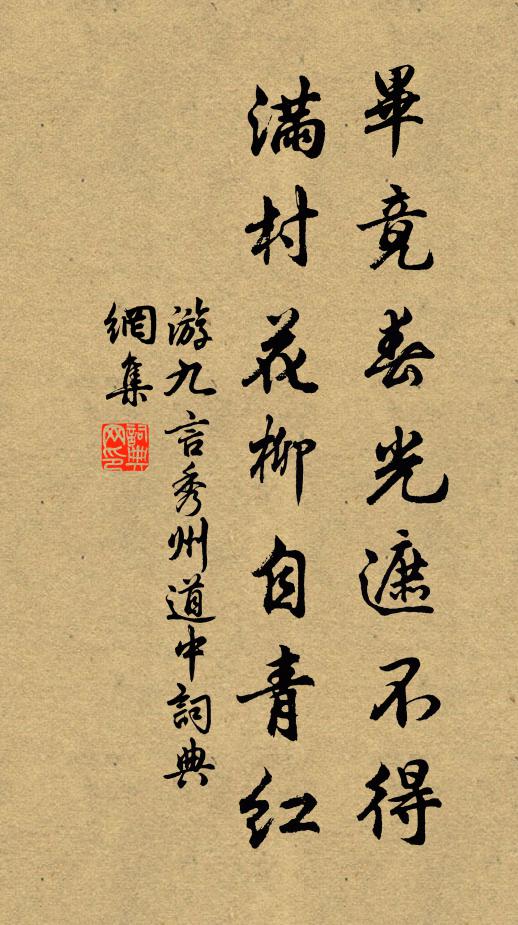 畢竟春光遮不得
滿村花柳自青紅
游九言秀州道中詞典
網集
詞典
网印